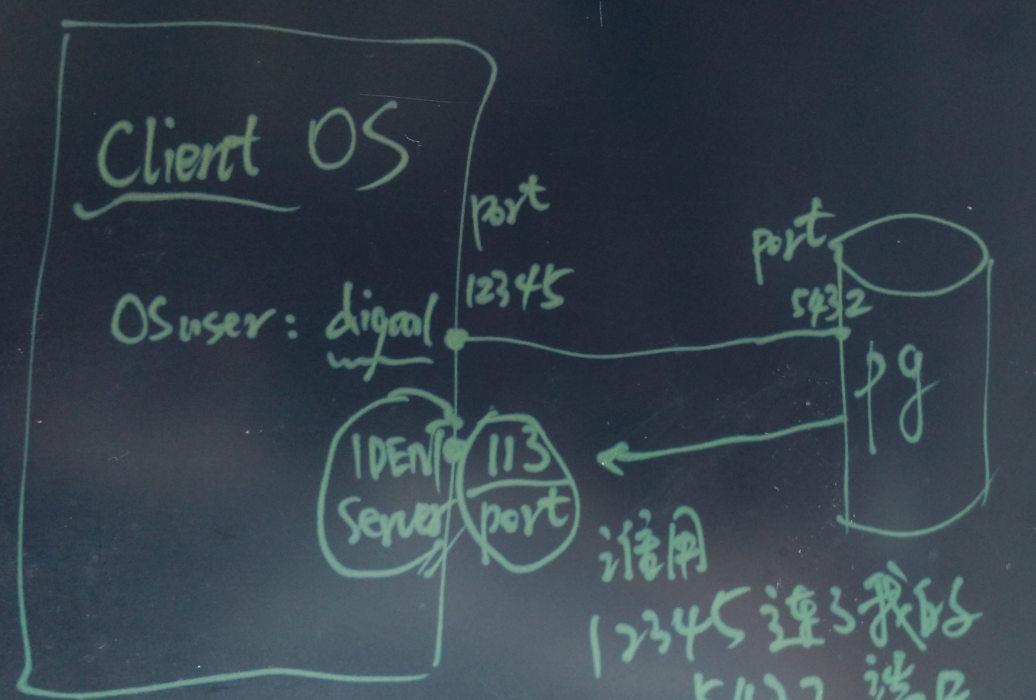 Client OS
port
12345
OS user: digoal
port
5432
pg
IDENT
server
113
port
谁用
12345 连了我的
5432 端口